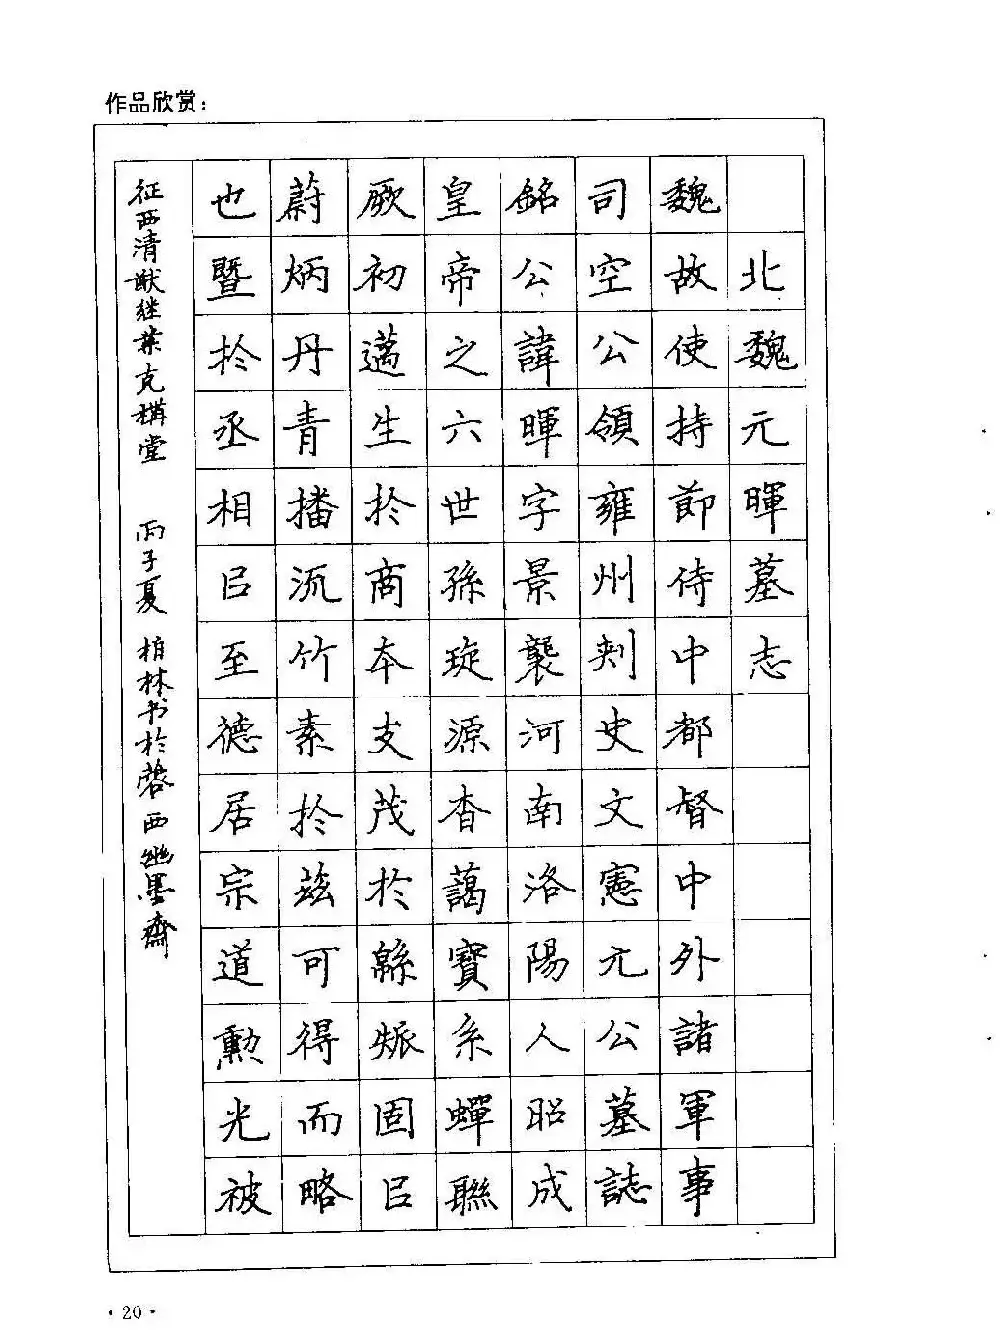 作品欣赏：
北魏元暉墓志
魏故使持節侍中都督中外諸軍事
司空公領雍州刾史文憲元公墓誌
銘公諱暉字景襲河南洛陽人昭成
皇帝之六世孫琁源杳藹寶系蟬聯
厥初邁生於商本支茂於緜娠固㠯
蔚炳丹青播流竹素於茲可得而略
也暨於丞相㠯至德居宗道勳光被
征西清猷继業克構堂 丙子夏 柏林书於磬西幽墨齋
·20·